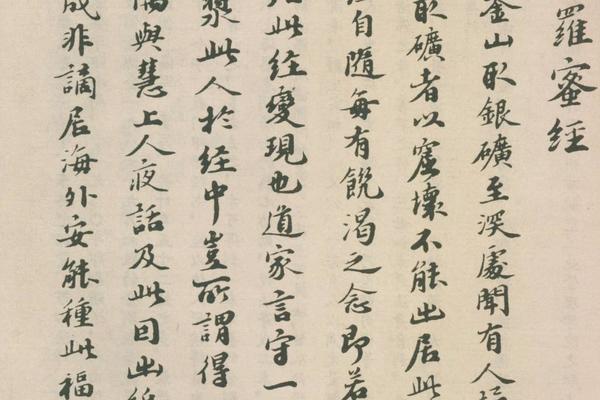 羅蜜経
山取銀礦至深處聞有人
取礦者以窟壞不能出居此
自隨每有飢渴之念即若
此経變現也道家言守一
漿此人於経中豈所謂得
偶與慧上人夜話及此因出
成非謫居海外安能種此福